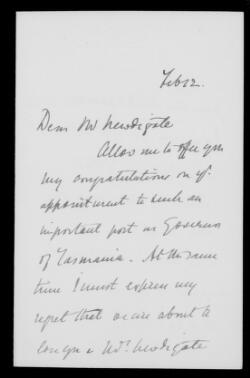 Feb 12.
Dear Mr Newdigate
Allow me to offer you
my congratulations on yr.
appointment to such an
important post as Governor
of Tasmania. At the same
time I must express my
regret that we are about to
lose you & Mrs. Newdigate